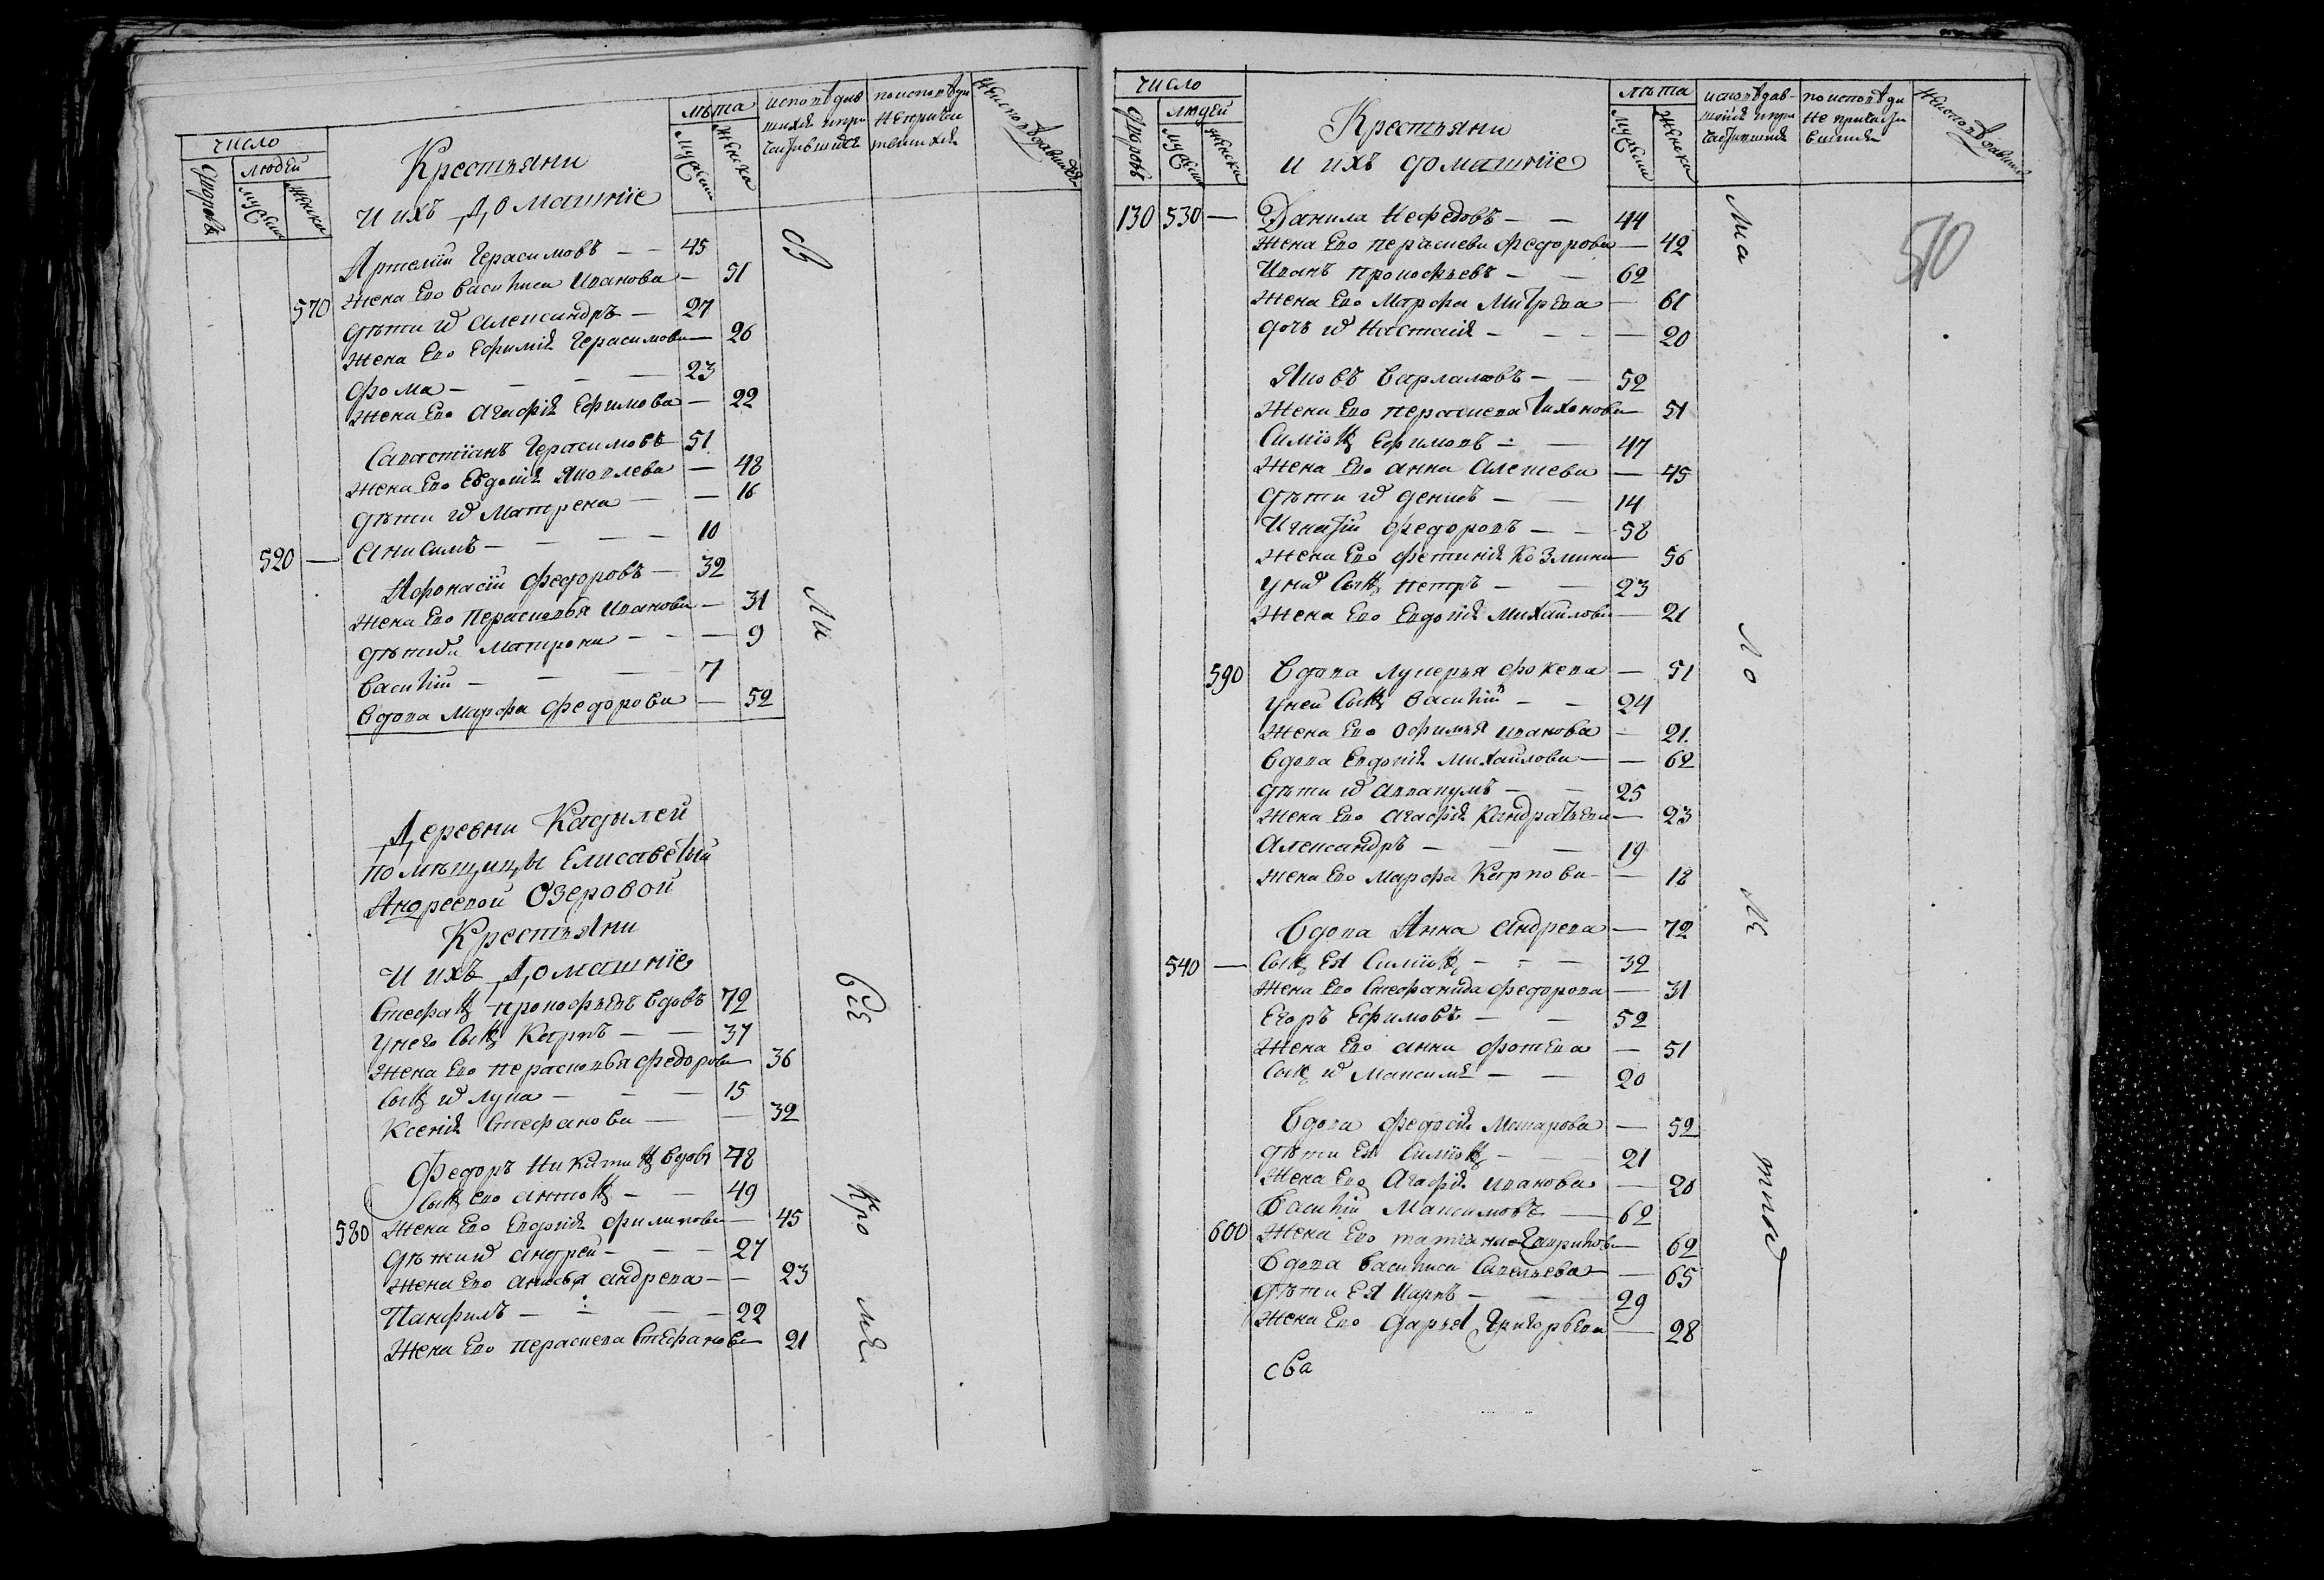 число
людей
дворовъ
мужеска
женска
Крестьяни
и ихъ Домашніе
лѣта
мужеска
женска
исповѣдав
шихся и при
частившихся
поисповѣди
Неприча
тившихся
Неисповѣдавшихся
Артемій Герасимовъ — 45
570 жена Ево Василиса Иванова — 51
дѣти и(х) Александръ — 27
Жена Ево Ефимія Герасимова — 26
Фома — 23
Жена Ево Агафія Ефимова — 22
Савастіанъ Герасимовъ 51
Жена Ево Евдокія Яковлева — 48
дѣти и(х) Матрена — 16
520 — Анисимъ — 10
Афонасіи Федоровъ — 32
Жена Ево Перасковья Иванова — 31
дѣти и(х) Матрона — 9
Василій — 7
Вдова Марфа Федорова — 52
Деревни Кадылей
помѣщицы Елисаветы
Андреевой Озеровой
Крестьяни
и ихъ Домашніе
Стефанъ Прокофьевъ вдовъ 72
Унего сынъ Карпъ — 37
Жена Ево Перасковья Федорова 36
сынъ и(х) Лука — 15
Ксенія Стефанова — 32
Федоръ Никитинъ вдовъ 78
сынъ Ево Антонъ — 49
580 Жена Ево Евдокія Филипова — 45
дѣти и(х) Андрей — 27
Жена Ево Анисья Андрева — 23
Панфилъ — 22
Жена Ево Перасковa Стефанова 21
число
людей
дворовъ
мужеска
женска
Крестьяни
и ихъ домашніе
лѣта
мужеска
женска
исповѣдав-
шихся и при
частившихся
поисповѣди
Не причасти
вшихся
Неисповѣдавшихся
570
130 530 — Данила Нефедовъ — 44
Жена Ево Пераскева Федорова — 42
Иванъ Прокофьевъ — 62
Жена Ево Марфа Митрева — 61
дочь и(х) Настасія — 20
Яковъ Варламовъ — 52
Жена Ево Пераскева Тихонова — 51
Симіонъ Ефимовъ — 47
Жена Ево Анна Алексева — 45
Дѣти и(х) Денисъ — 14
Игнатій Федоровъ — 58
Жена Ево Фетинія Козмина — 56
У них сынъ Петръ — 23
Жена Ево Евдокія Михаилова — 21
590 Вдова Лукерья Фокева — 51
Уней сынъ Василій — 24
Жена Ево Офимья Иванова — 21
Вдова Евдокія Михайлова — 62
Дѣти и(х) Аввакумъ — 25
Жена Ево Агафія Кандратьева — 23
Александръ — 19
Жена Ево Марфа Карпова — 18
Вдова Анна Андрева — 72
540 — сынъ Ея Симіонъ — 32
Жена Ево Стефанида Федорова — 31
Егоръ Ефимовъ — 52
Жена Ево Анна Фотева — 51
сынъ и(х) Максимъ — 20
Вдова Федосія Макарова — 52
дѣти Ея Симіонъ — 21
Жена Ево Агафія Иванова — 20
Василій Максимовъ — 62
600 Жена Ево Татіана Гаврилова — 62
Вдова Василиса Савельева — 65
Дѣти Ея Карпъ — 29
Жена Ево Дарья Григорьева — 28
сва